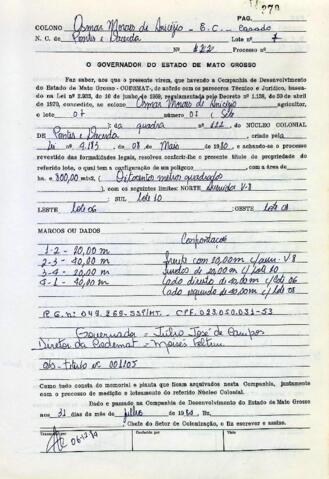 PAG.
270
COLONO Osmar Moraes de E.C. - Casado
N. C. de Pontes e Lacerda Lote nº 7
Nº 422 Processo nº
O GOVERNADOR DO ESTADO DE MATO GROSSO
Faz saber, aos que o presente virem, que havendo a Companhia de Desenvolvimento
do Estado de Mato Grosso - CODEMAT-, de acordo com os pareceres Técnico e Jurídico, basea-
da na Lei nº 2.983, de 10 de junho de 1969, regulamentada pelo Decreto nº 1.138, de 29 de abril
de 1970, concedido, ao colono Osmar Moraes de agricultor,
o lote 07 número 07 ( Sete
); da quadra 122 do NÚCLEO COLONIAL
DE Pontes e Lacerda criado pela
Lei nº 4.193, de 08 de Maio de 1980, e achando-se o processo
revestido das formalidades legais, resolves conferir-lhe o presente título de propriedade do
referido lote, o qual tem a configuração de um polígono com a área de
800,00 m2 ( Oitocentos metros quadrados
), com os seguintes limites: NORTE V-8
; SUL lote 10
LESTE lote 06 ; OESTE lote 08
MARCOS OU DADOS
Confrontações
1-2 - 20,00 m
2-3 - 40,00 m frente com 20,00m c/ V8
3-4 - 20,00 m fundos de 20,00m c/ lote 10
4-1 - 40,00 m Lado direito de 40,00m c/ lote 06
Lado esquerdo de 40,00m c/ lote 08
R.G. nº 049.269-SSP/MT. - CPF. 023.050.031-53
Governador = Júlio José de Campos
Diretor da Codemat = Moisés Feltrin
Obs - título nº 001105
Como tudo consta do memorial e planta que ficam arquivados nesta Companhia, juntamente
com o processo de medição e loteamento do referido Núcleo Colonial.
Dado e passado na Companhia de Desenvolvimento do Estado de Mato Grosso
aos 31 dias do mês de julho de
Chefe do Setor de Colonização, o fiz escrever e assino.
Conferido por Visto